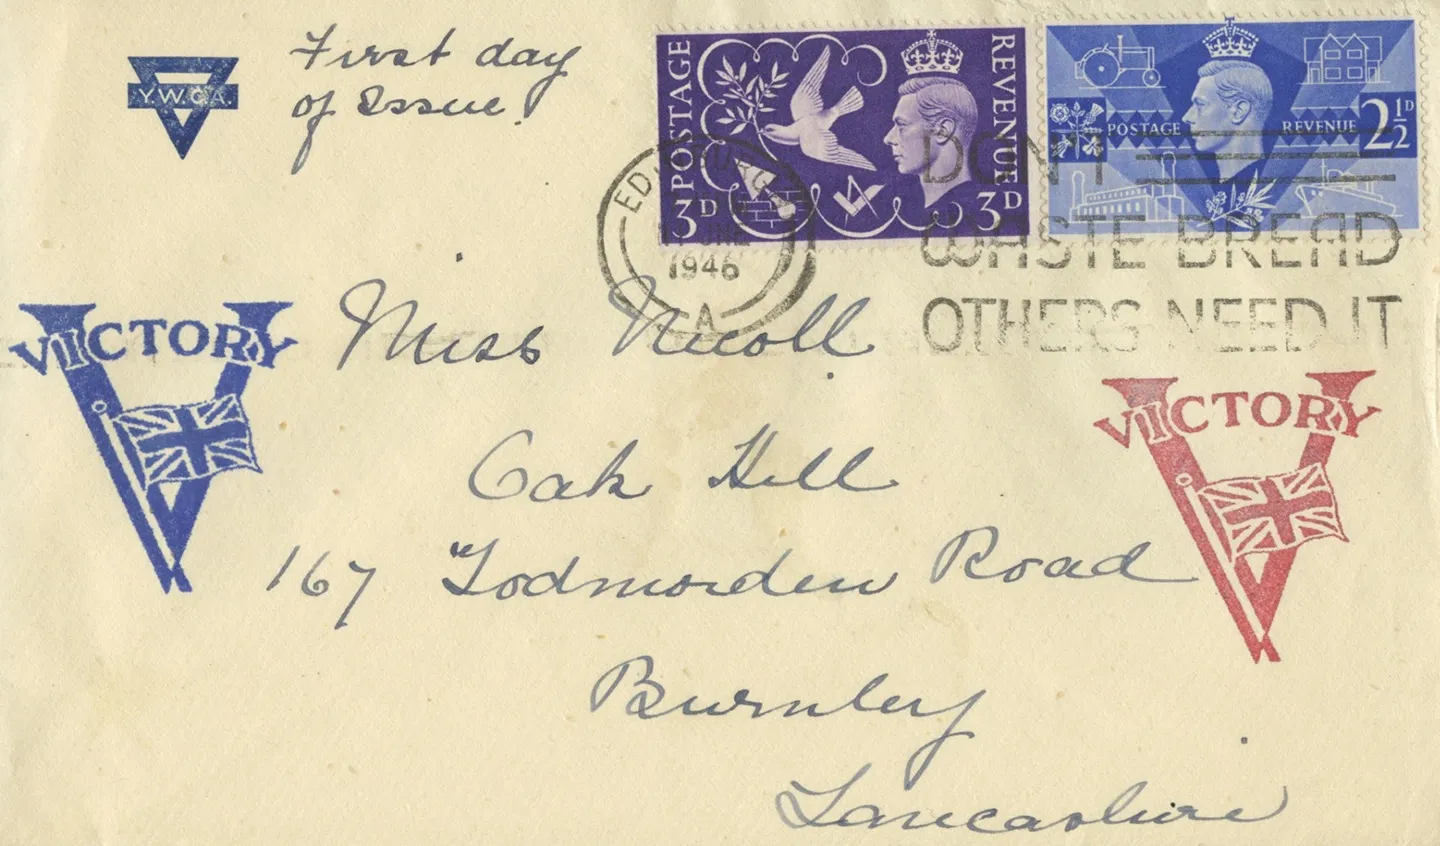 Y.W.C.A.
First day
of Issue.
POSTAGE
REVENUE
3D
3D
POSTAGE
REVENUE
2½D
EDINBURGH
JUNE
1946
A
DON'T
WASTE BREAD
OTHERS NEED IT
VICTORY
VICTORY
Miss Nicoll
Oak Hill
167 Todmorden Road
Burnley
Lancashire